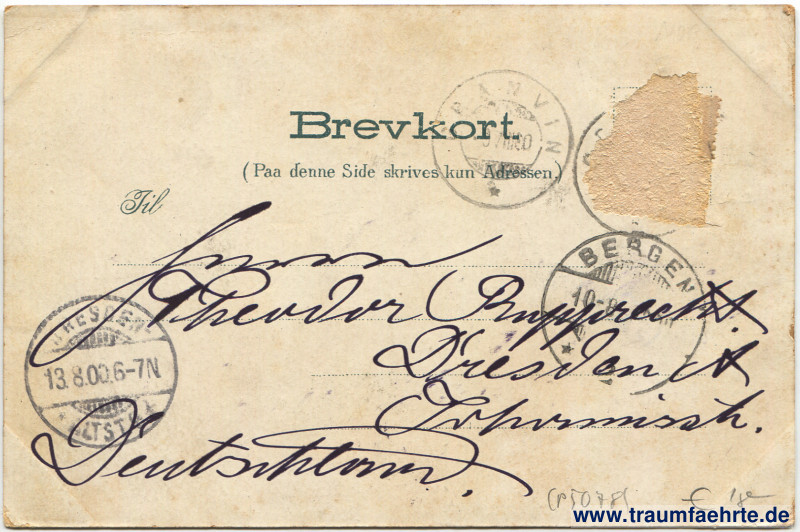 Brevkort.
(Paa denne Side skrives kun Adressen.)
Til
Herrn
Theodor Rupprecht.
Dresden A
Johannisstr.
Deutschland.
GRANVIN
BERGEN
10-8
DRESDEN
13.8.00.6-7N.
ALTST.
www.traumfaehrte.de